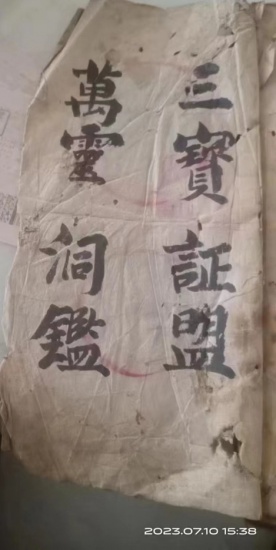 三寳証盟
萬靈洞鑑
2023.07.10 15:38